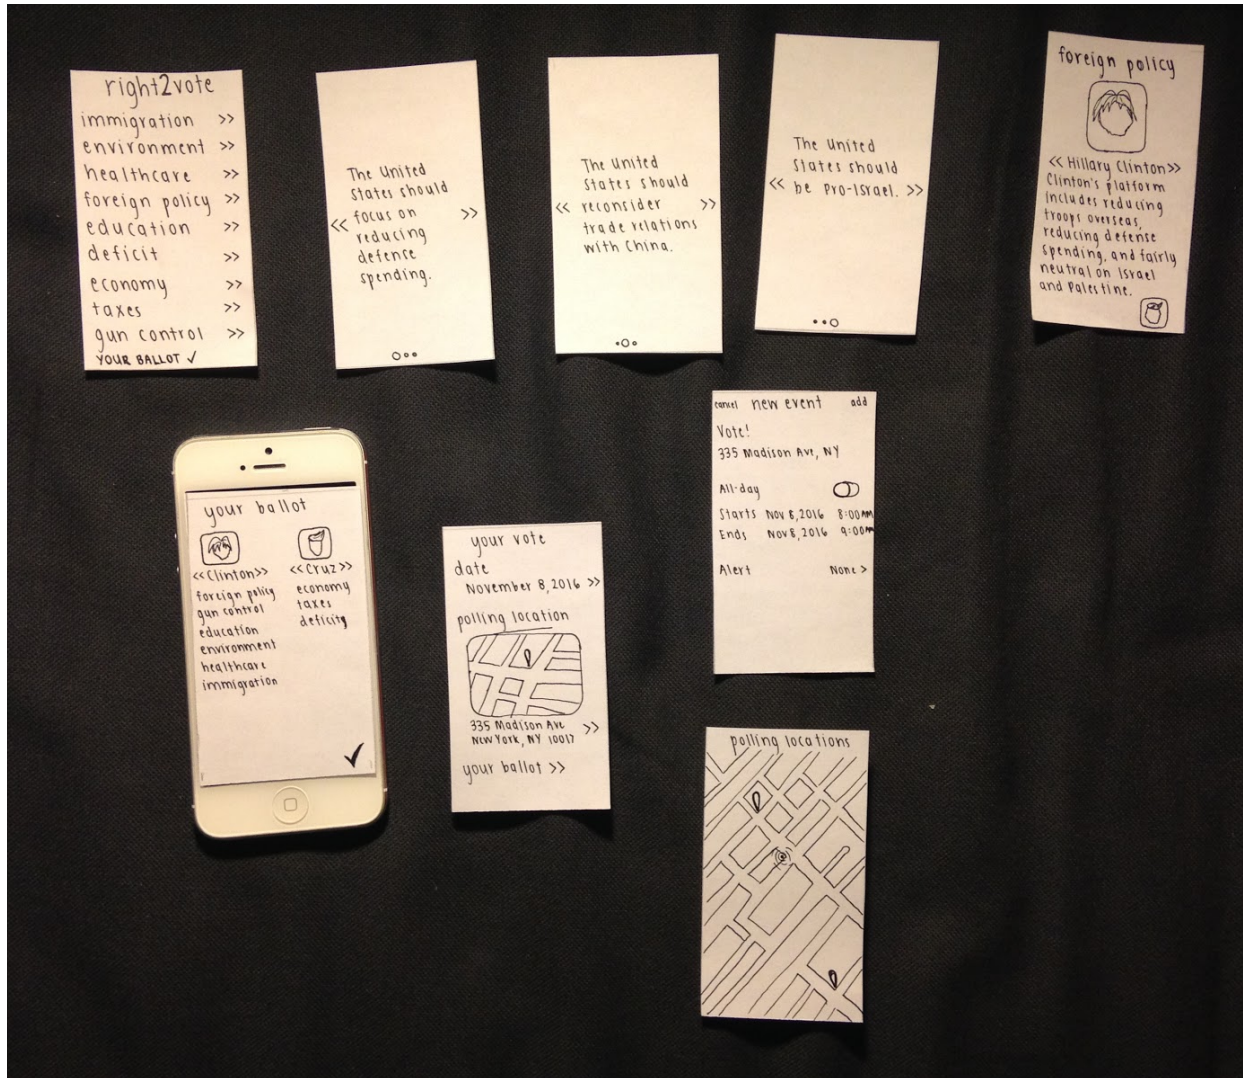 right2vote
immigration >>
environment >>
healthcare >>
foreign policy >>
education >>
deficit >>
economy >>
taxes >>
gun control >>
YOUR BALLOT ✓
The United
States should
<< focus on >>
reducing
defense
spending.
The United
States should
<< reconsider >>
trade relations
with China.
The United
States should
<< be Pro-Israel. >>
foreign policy
<< Hillary Clinton>>
Clinton's platform
includes reducing
troops overseas,
reducing defense
spending, and fairly
neutral on Israel
and Palestine.
your ballot
<<Clinton>> <<Cruz>>
foreign policy economy
gun control taxes
education deficit
environment
healthcare
immigration
✓
your vote
date
November 8, 2016 >>
polling location
335 Madison Ave >>
New York, NY 10017
your ballot >>
cancel new event add
Vote!
335 Madison Ave, NY
All-day
Starts Nov 8, 2016 8:00AM
Ends Nov 8, 2016 9:00AM
Alert None >
polling locations